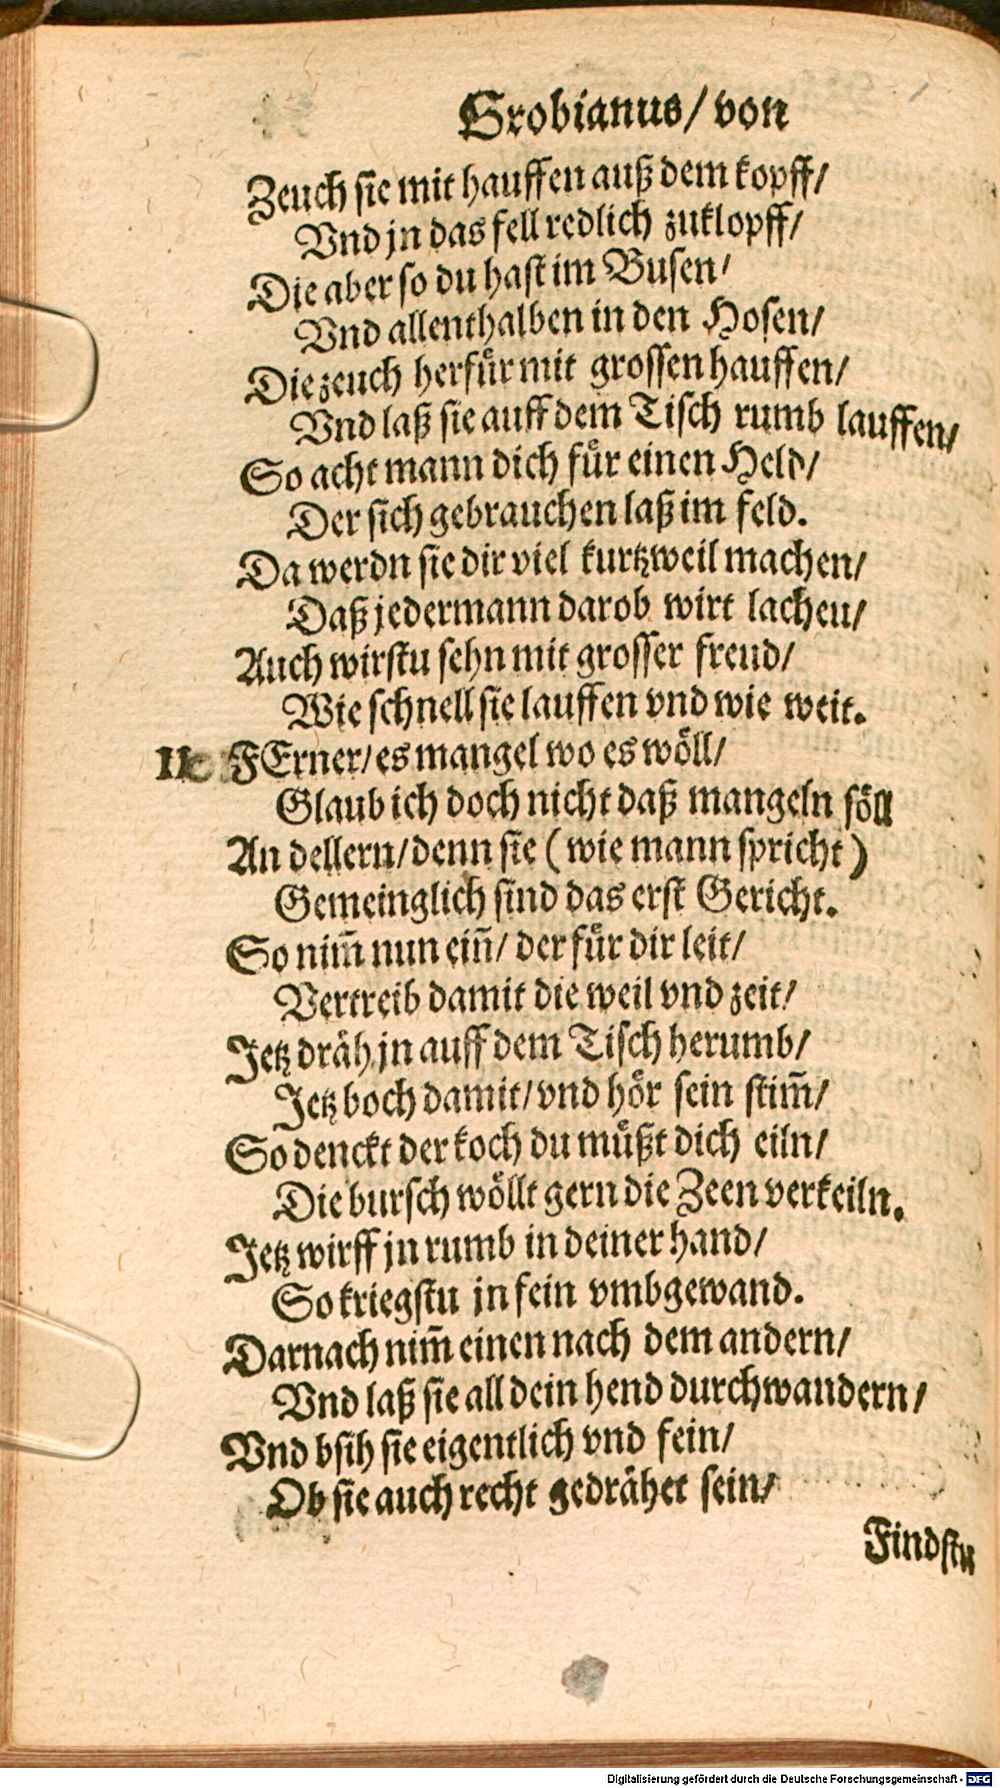 Grobianus/ von
Zeuch sie mit hauffen auß dem kopff/
Vnd jn das fell redlich zuklopff/
Die aber so du hast im Busen/
Vnd allenthalben in den Hosen/
Die zeuch herfür mit grossen hauffen/
Vnd laß sie auff dem Tisch rumb lauffen/
So acht mann dich für einen Held/
Der sich gebrauchen laß im feld.
Da werdn sie dir viel kurtzweil machen/
Daß jedermann darob wirt lacheu/
Auch wirstu sehn mit grosser freud/
Wie schnell sie lauffen vnd wie weit.
FErner/ es mangel wo es wöll/
Glaub ich doch nicht daß mangeln söll
An dellern/ denn sie (wie mann spricht)
Gemeinglich sind das erst Gericht.
So nim̄ nun ein̄/ der für dir leit/
Vertreib damit die weil vnd zeit/
Jetz dräh jn auff dem Tisch herumb/
Jetz boch damit/ vnd hör sein stim̄/
So denckt der koch du müßt dich eiln/
Die bursch wöllt gern die Zeen verkeiln.
Jetz wirff jn rumb in deiner hand/
So kriegstu jn fein vmbgewand.
Darnach nim̄ einen nach dem andern/
Vnd laß sie all dein hend durchwandern/
Vnd bsih sie eigentlich vnd fein/
Ob sie auch recht gedrähet sein/
Findstu
Digitalisierung gefördert durch die Deutsche Forschungsgemeinschaft - DFG